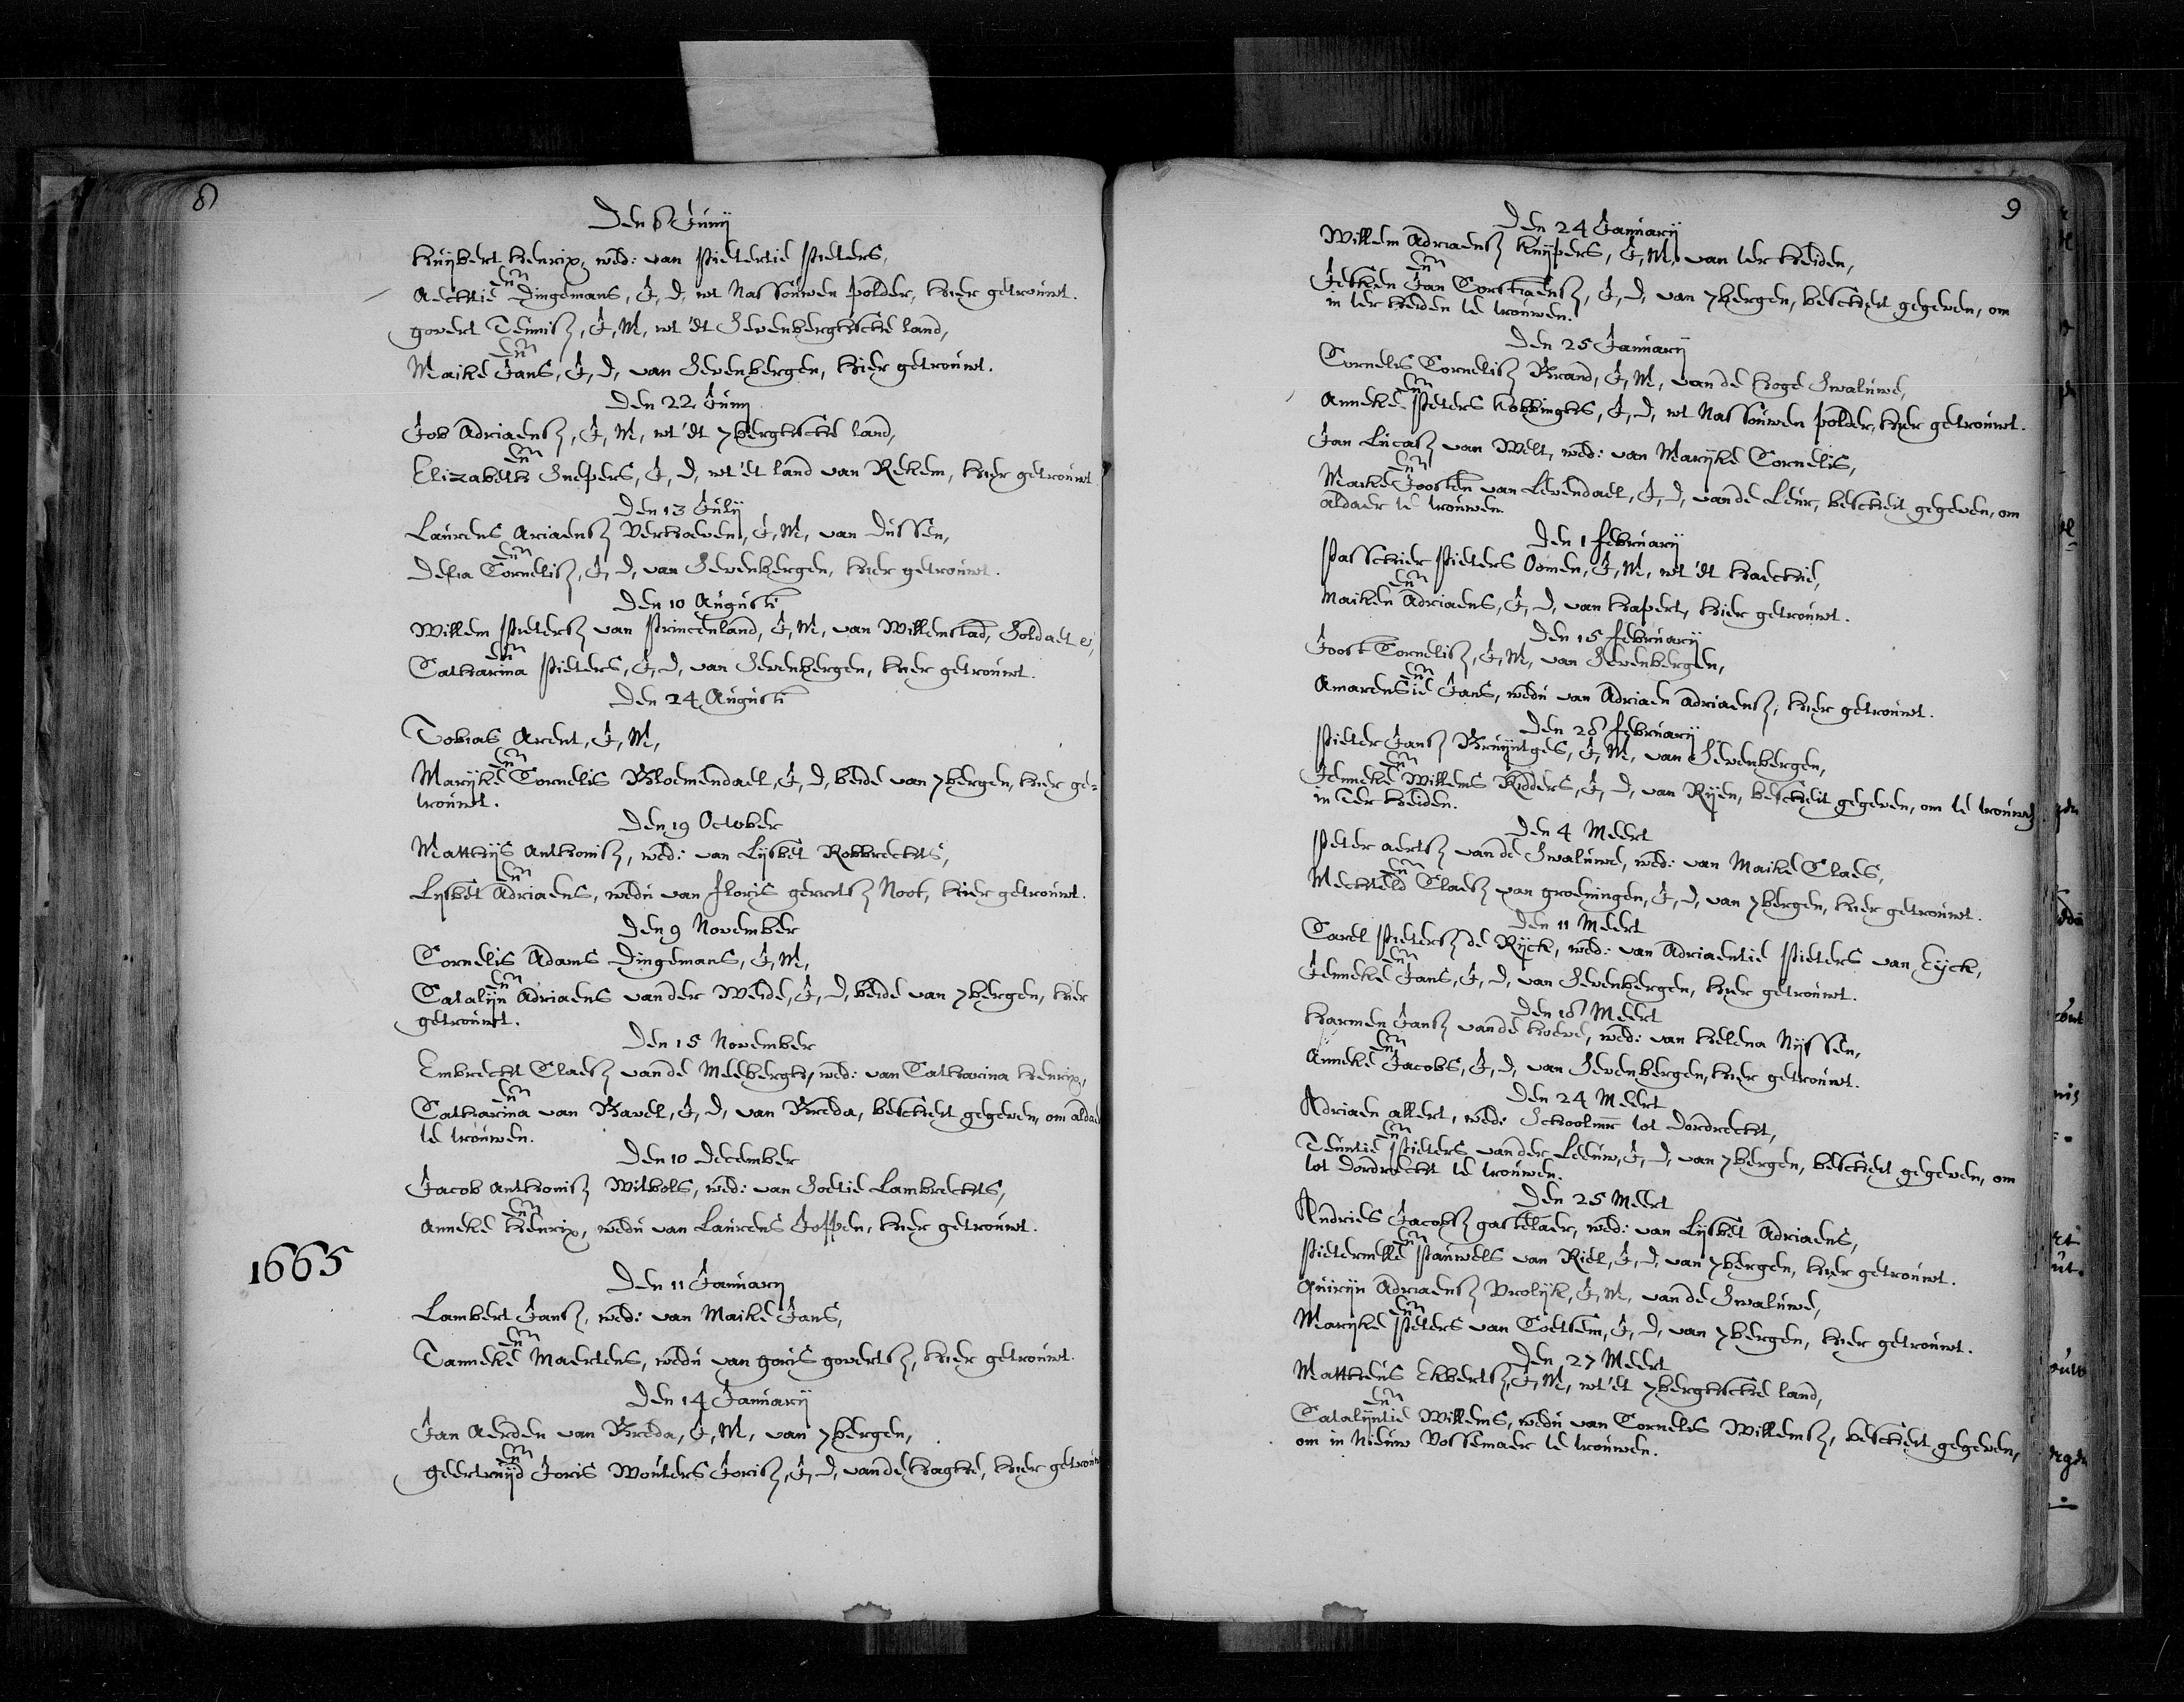 8
Den 8 Junij
Huijbert Henrix, wed: van Pietertie Pieters,
en
Aechtie Dingemans, J, D, wt Nassouwen polder, hier getrouwt.
Govert Teunisz, J, M, wt 'et Sevenberghsche land,
en
Maike Jans, J, D, van Sevenbergen, hier getrouwt.
Den 22 Junij
Job Adriaensz, J, M, wt 'et 7berghsche land,
en
Elizabeth Snepers, J, D, wt 'et land van Rekem, hier getrouwt
Den 13 Julij
Laurens Ariaensz Verhoeven, J, M, van Dussen,
en
Delia Cornelisz, J, D, van Sevenbergen, hier getrouwt.
Den 10 Augusti
Willem Pietersz van Princenland, J, M, van Willemstad, Soldaet
en
Catharina Pieters, J, D, van Sevenbergen, hier getrouwt.
Den 24 Augusti
Tobias Arent, J, M,
en
Marijke Cornelis Bloemendael, J, D, beide van 7bergen, hier ge-
trouwt.
Den 19 October
Matthijs Anthonisz, wed: van Lijsbet Robbrechts,
en
Lijsbet Adriaens, wedu van Floris Gerritsz Noot, hier getrouwt.
Den 9 November
Cornelis Adams Dingemans, J, M,
en
Catalijn Adriaens vander Weide, J, D, beide van 7bergen, hier
getrouwt.
Den 15 November
Embrecht Claesz vande Meebergh, wed: van Catharina Henrix,
en
Catharina van Bavel, J, D, van Breda, bescheit gegeven, om aldae
te trouwen.
Den 10 December
Jacob Anthonisz Witbols, wed: van Soetie Lambrechts,
en
Anneke Henrix, wedu van Laurens Joppen, hier getrouwt.
1665
Den 11 Januarij
Lambert Jansz, wed: van Maike Jans,
en
Tanneke Maertens, wedu van Goris Govertsz, hier getrouwt.
Den 14 Januarij
Jan Aerden van Breda, J, M, van 7bergen,
en
Geertruijd Joris Wouters Jorisz, J, D, vande Haghe, hier getrouw
9
Den 24 Januarij
Willem Adriaensz Kuijpers, J, M, van ter Heiden,
en
Jenken Jan Corstiaensz, J, D, van 7bergen, bescheit gegeven, om
in ter Heiden te trouwen.
Den 25 Januarij
Cornelis Cornelisz Brand, J, M, van de Hoge Swaluwe,
en
Anneke Pieters Hobbinghs, J, D, wt Nassouwen polder, hier getrouwt.
Jan Lucasz van Welt, wed: van Marijke Cornelis,
en
Maike Joosten van Levendael, J, D, vande Leur, bescheit gegeven, om
aldaer te trouwen.
Den 1 Februarij
Passchier Pieters Oomen, J, M, wt 'et Haechie,
en
Maiken Adriaens, J, D, van Hapert, hier getrouwt.
Den 15 Februarij
Joost Cornelisz, J, M, van Sevenbergen,
en
Amarensie Jans, wedu van Adriaen Adriaensz, hier getrouwt.
Den 28 Februarij
Pieter Jansz Bruijntges, J, M, van Sevenbergen,
en
Jenneke Willems Ridders, J, D, van Rijen, bescheit gegeven, om te trouwen
in Ter Heiden.
Den 4 Meert
Pieter Aertsz vande Swaluwe, wed: van Maike Claes,
en
Mechteld Claesz van Groeningen, J, D, van 7bergen, hier getrouwt.
Den 11 Meert
Carel Pietersz de Rijck, wed: van Adriaentie Pieters van Eijck,
en
Jenneke Jans, J, D, van Sevenbergen, hier getrouwt.
Den 18 Meert
Harmen Jansz vande Hoeve, wed: van Helena Nijssen,
en
Anneke Jacobs, J, D, van Sevenbergen, hier getrouwt.
Den 24 Meert
Adriaen Allert, wed: Schoolmr tot Dordrecht,
en
Teuntie Pieters vander Leeuw, J, D, van 7bergen, bescheit gegeven, om
tot Dordrecht te trouwen.
Den 25 Meert
Andries Jacobsz Gastelaer, wed: van Lijsbet Adriaens,
en
Pieternelle Pauwels van Riel, J, D, van 7bergen, hier getrouwt.
Quirijn Adriaensz Vrolijk, J, M, vande Swaluwe,
en
Marijke Pieters van Coetsem, J, D, van 7bergen, hier getrouwt.
Den 27 Meert
Mattheus Ekbertsz, J, M, wt 'et 7berghsche land,
en
Catalijntie Willems, wedu van Cornelis Willemsz, bescheit gegeven,
om in Nieuw Vossemaer te trouwen.